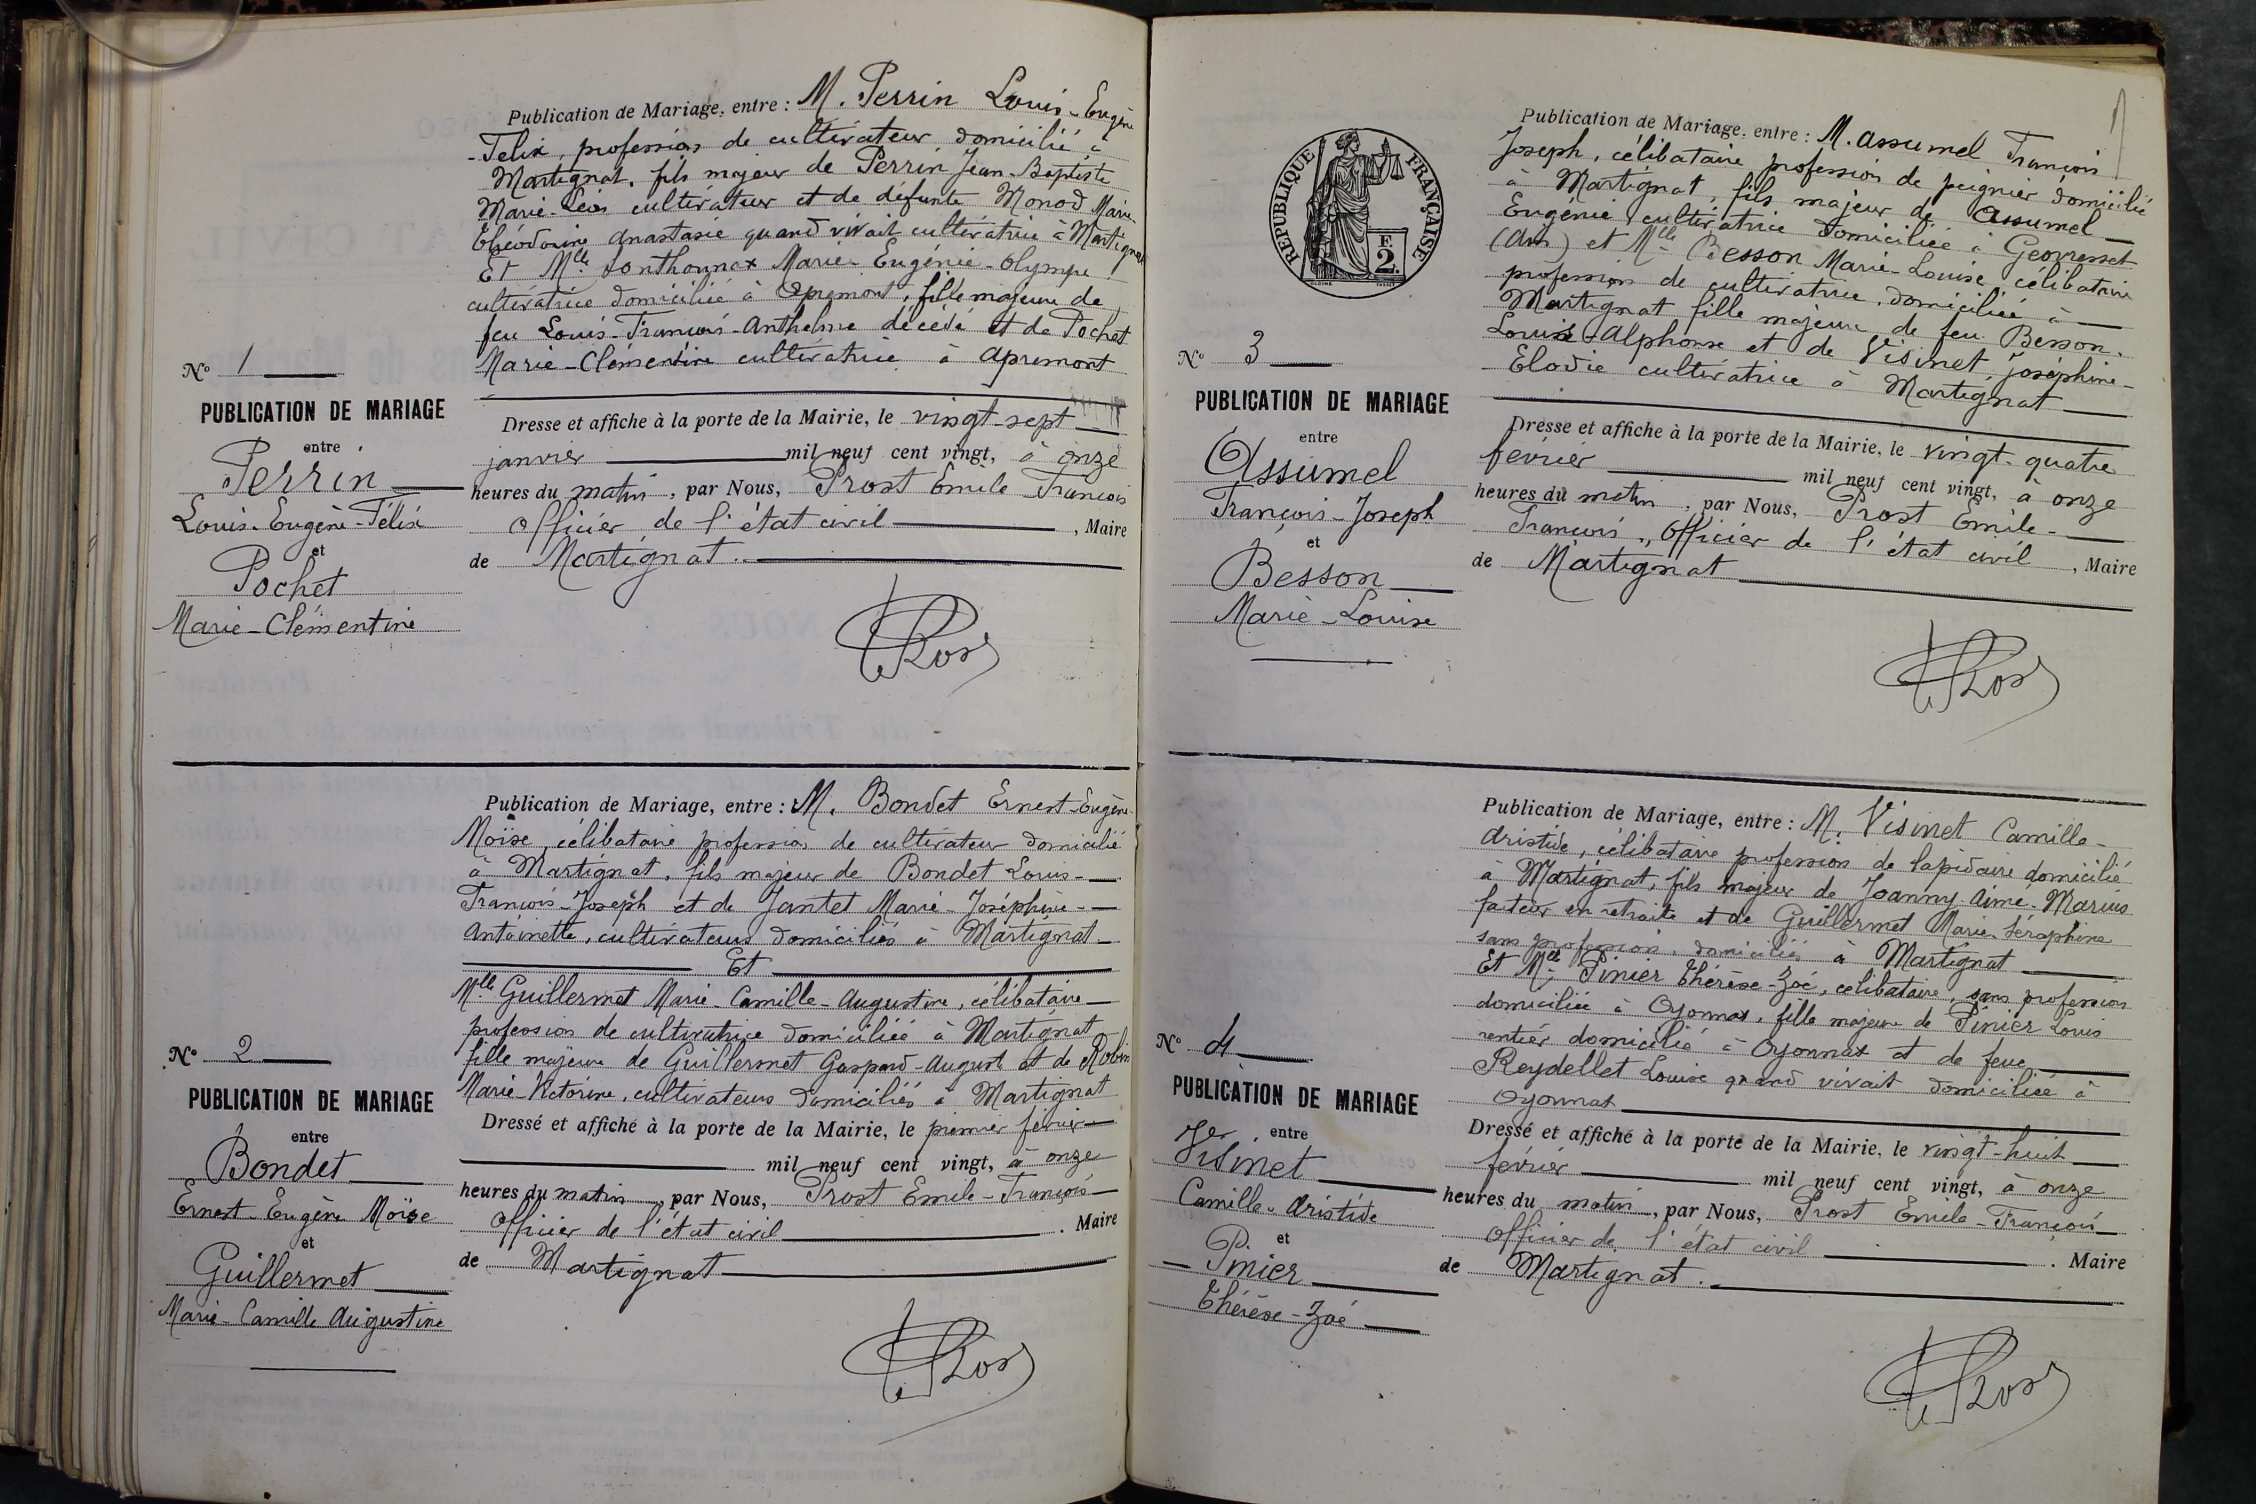 Publication de Mariage, entre : M. Perrin Louis-Eugène
-Félix, profession de cultivateur domicilié à
Martignat, fils majeur de Perrin Jean-Baptiste
Marie-Léon cultivateur et de défunte Monod Marie-
Théodorine Anastasie quand vivait cultivatrice à Martignat
Et Mlle Jonthonnex Marie-Eugénie-Olympe
cultivatrice domiciliée à Apremont, fille majeure de
feu Louis-François-Anthelme décédé et de Pochet
Marie-Clémentine cultivatrice à Apremont
No 1
PUBLICATION DE MARIAGE
entre
Perrin
Louis-Eugène-Félix
et
Pochet
Marie-Clémentine
Dresse et affiche à la porte de la Mairie, le vingt-sept
janvier mil neuf cent vingt, à onze
heures du matin, par Nous, Prost Emile François
Officier de l'état civil, Maire
de Martignat.
Publication de Mariage, entre : M. Bondet Ernest-Eugène
Moïse, célibataire profession de cultivateur domicilié
à Martignat, fils majeur de Bondet Louis-
François-Joseph et de Jantet Marie-Joséphine-
Antoinette, cultivateurs domiciliés à Martignat
Et
Mlle Guillermet Marie-Camille-Augustine, célibataire
profession de cultivatrice domiciliée à Martignat
fille majeure de Guillermet Gaspard-August et de Robin
Marie Victorine, cultivateurs domiciliés à Martignat
No 2
PUBLICATION DE MARIAGE
entre
Bondet
Ernest-Eugène Moïse
et
Guillermet
Marie-Camille Augustine
Dressé et affiché à la porte de la Mairie, le premier février
mil neuf cent vingt, à onze
heures du matin, par Nous, Prost Emile-François
Officier de l'état civil. Maire
de Martignat
RÉPUBLIQUE FRANÇAISE
F.
2.
Publication de Mariage, entre : M. Assumel François
Joseph, célibataire profession de peignier domicilié
à Martignat, fils majeur de Assumel
Eugénie cultivatrice domiciliée à Géovresset
(Ain) et Mlle Besson Marie-Louise, célibataire
profession de cultivatrice, domiciliée à
Martignat fille majeure de feu Besson.
Louis-Alphonse et de Visinet, Joséphine-
Elodie cultivatrice à Martignat
No 3
PUBLICATION DE MARIAGE
entre
Assumel
François-Joseph
et
Besson
Marie-Louise
Dresse et affiche à la porte de la Mairie, le vingt-quatre
février mil neuf cent vingt, à onze
heures du matin, par Nous, Prost Emile-
François, Officier de l'état civil, Maire
de Martignat
Publication de Mariage, entre : M. Visinet Camille-
Aristide, célibataire profession de lapidaire domicilié
à Martignat, fils majeur de Joanny-Aimé-Marius
facteur en retraite et de Guillermet Marie Séraphine
sans profession, domiciliés à Martignat
Et Mlle Pinier Thérèse-Zoé, célibataire, sans profession
domiciliée à Oyonnax, fille majeure de Pinier Louis
rentier domicilié à Oyonnax et de feue
Reydellet Louise quand vivait domiciliée à
Oyonnax
No 4
PUBLICATION DE MARIAGE
entre
Visinet
Camille-Aristide
et
Pinier
Thérèse-Zoé
Dressé et affiché à la porte de la Mairie, le vingt-huit
février mil neuf cent vingt, à onze
heures du matin, par Nous, Prost Emile-François
Officier de l'état civil. Maire
de Martignat.